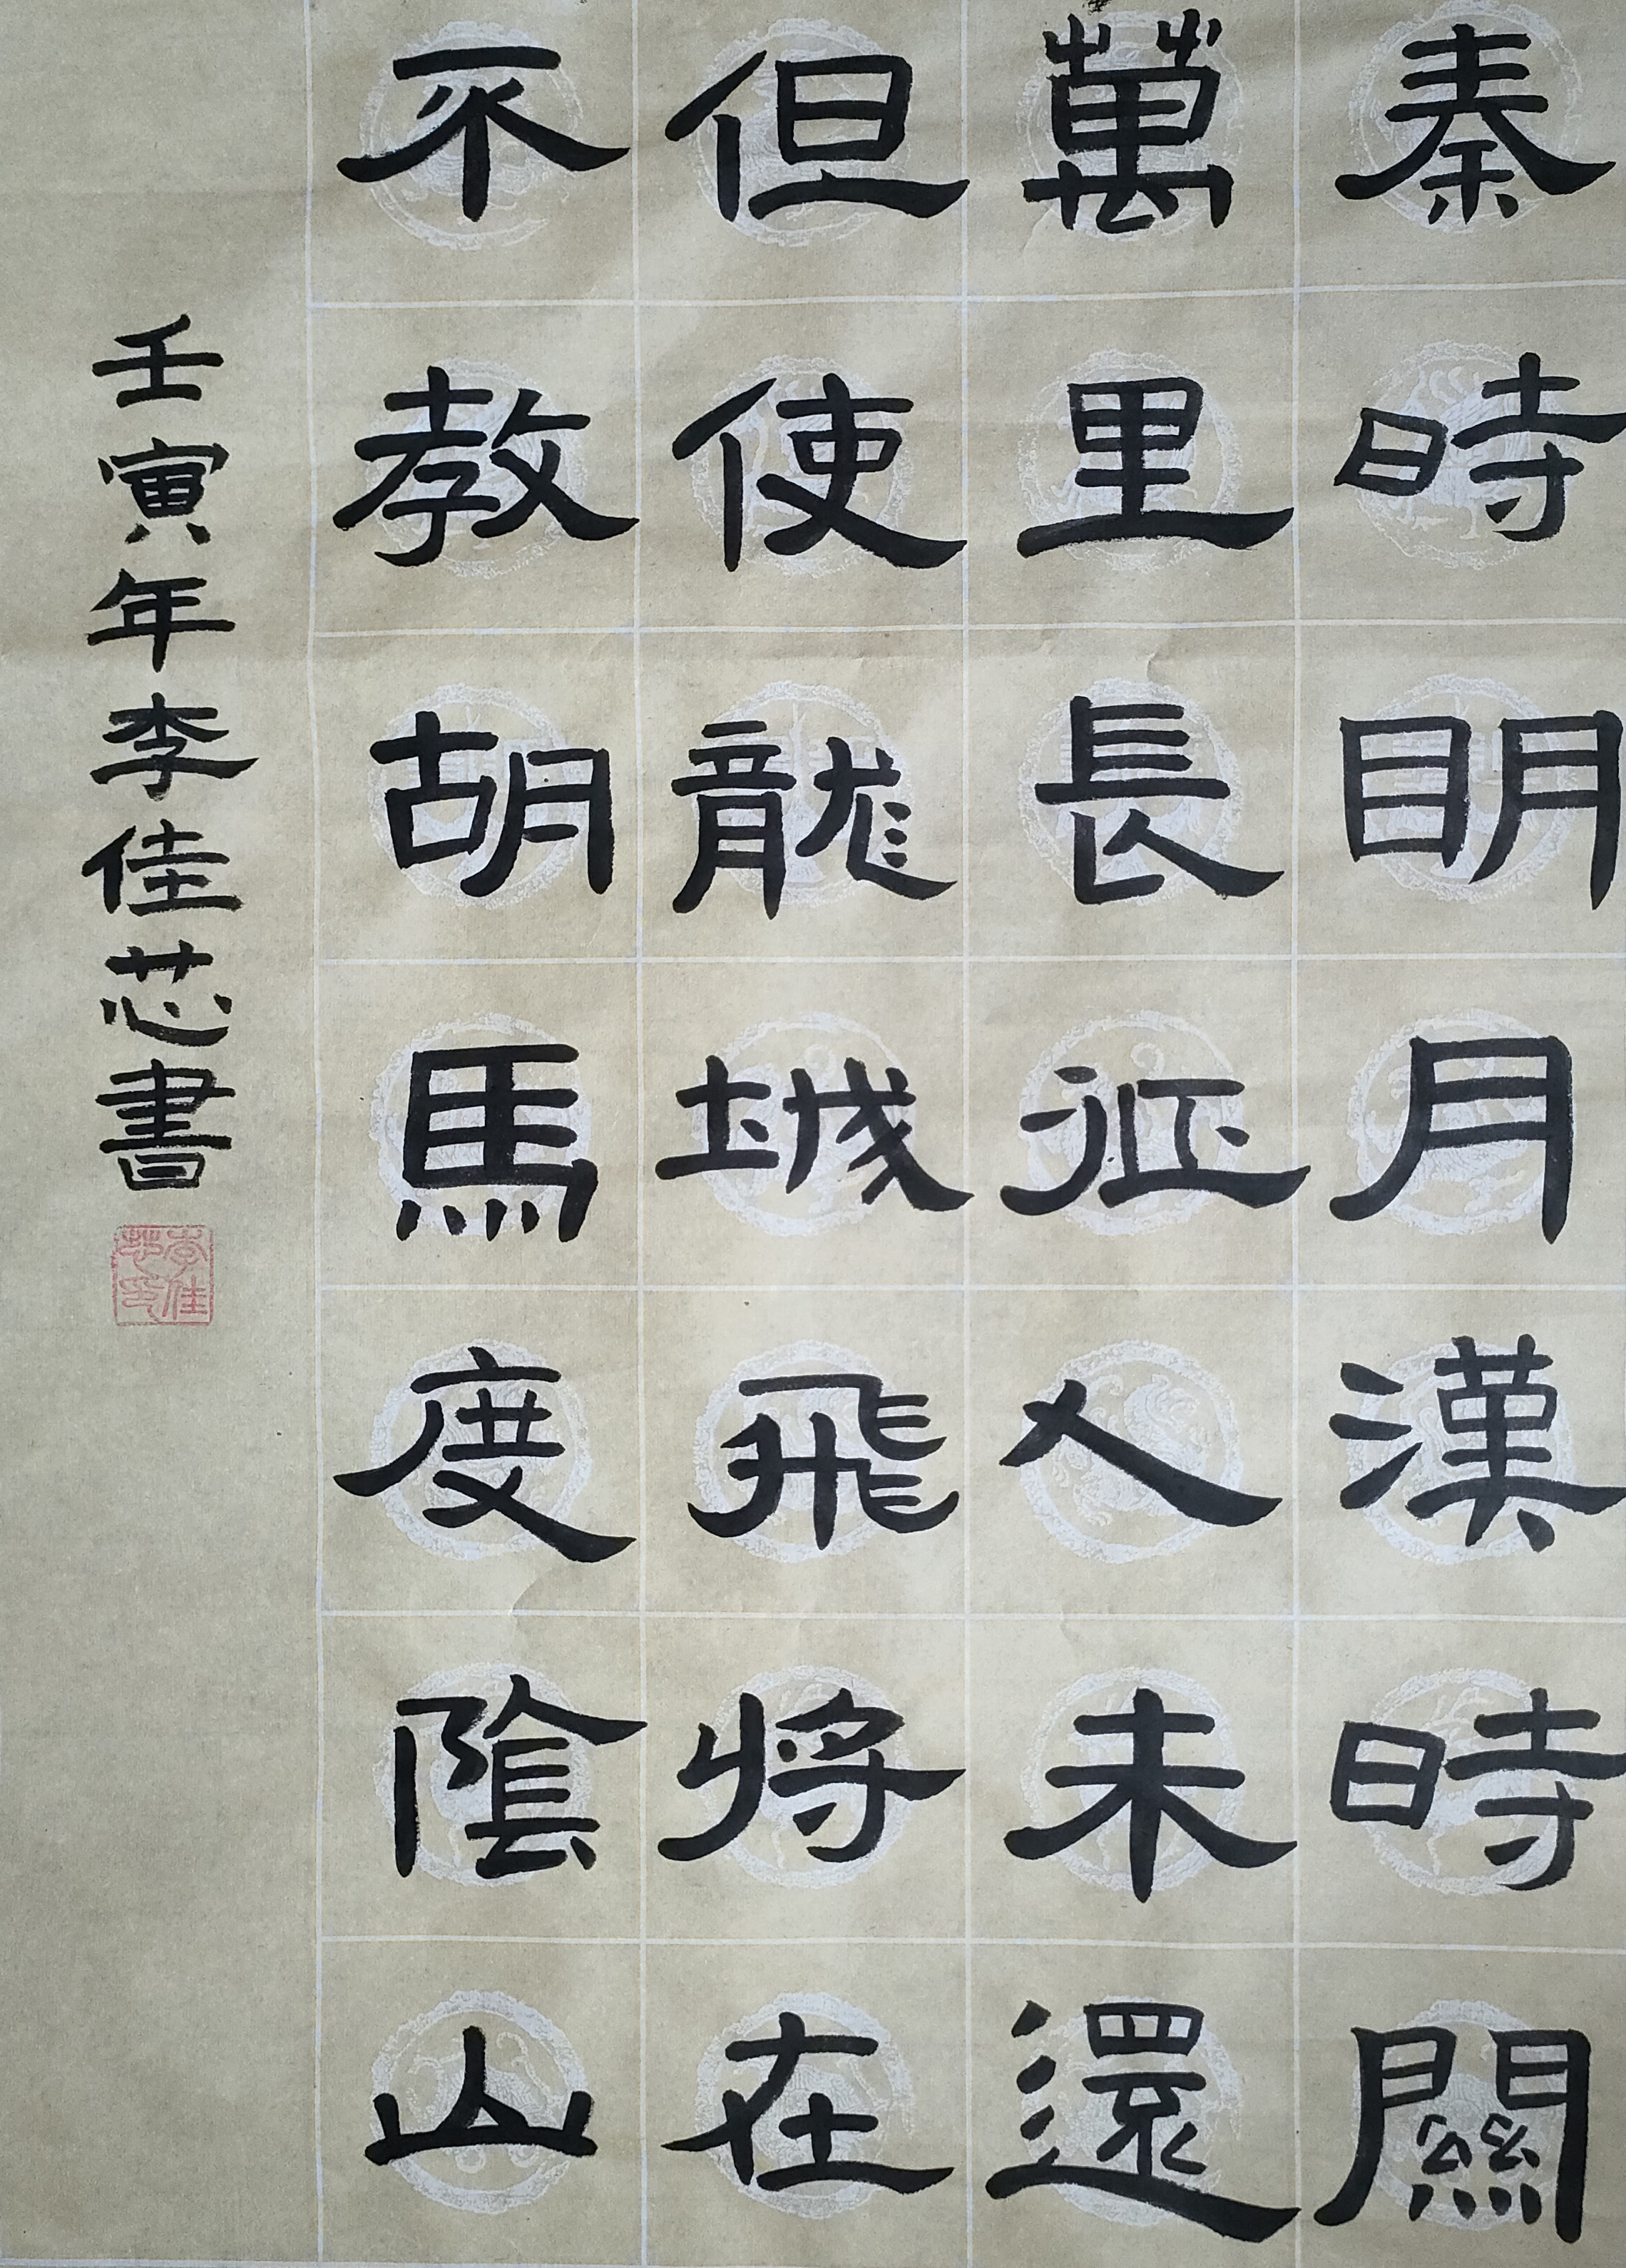 秦時明月漢時關
萬里長征人未還
但使龍城飛將在
不教胡馬度陰山
壬寅年李佳芯書
李佳芯印